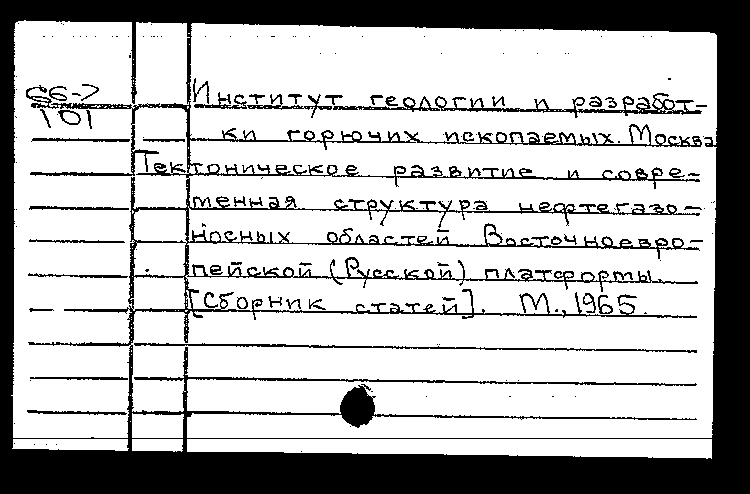 Институт геологии и разработ-
101
ки горючих ископаемых. Москва
Тектоническое развитие и совре-
менная структура нефтегазо-
носных областей Восточноевро-
пейской (Русской) платформы.
[Сборник статей]. М., 1965.